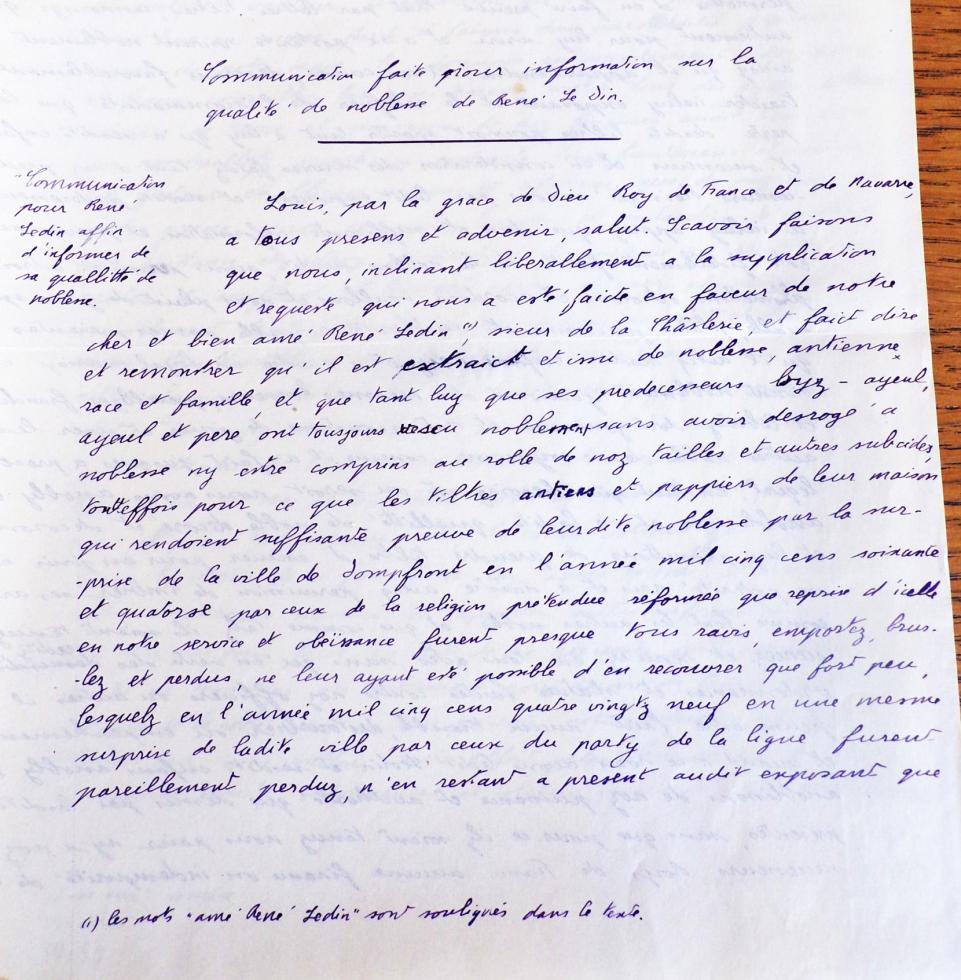 Communication faite pour information sur la
qualité de noblesse de René Le Din.
"Communication
pour René
Ledin affin
d'informer de
sa quallitté de
noblesse.
Louis, par la grace de Dieu Roy de France et de Navarre,
a tous presens et advenir, salut. Scavoir faisons
que nous inclinant liberallement a la supplication
et requeste qui nous a esté faide en faveur de notre
cher et bien amé René Ledin (1), sieur de la Châslerie, et faict dire
et remontrer qu'il est extraict et issu de noblesse, antienne
race et famille, et que tant luy que ses predecesseurs byz - ayeul,
ayeul et pere ont tousjours vescu noblement, sans avoir desrogé a
noblesse ny estre comprins au rolle de noz tailles et autres subcides,
toutteffois pour ce que les tiltres antiens et pappiers de leur maison
qui rendoient suffisante preuve de leurdite noblesse par la sur-
-prise de la ville de Dompfront en l'année mil cinq cens soixante
et quatorse par ceux de la religion prétendue réformée que reprise d'icelle
en notre service et obeissance furent presque tous ravis emportez, brus-
-lez et perdus, ne leur ayant esté possible d'en recouvrer que fort peu,
lesquelz en l'année mil cinq cens quatre vingtz neuf en une mesme
surprise de ladite ville par ceux du party de la ligue furent
pareillement perduz, n'en restant a present audit exposant que
(1) les mots "amé René Ledin" sont soulignés dans le texte.